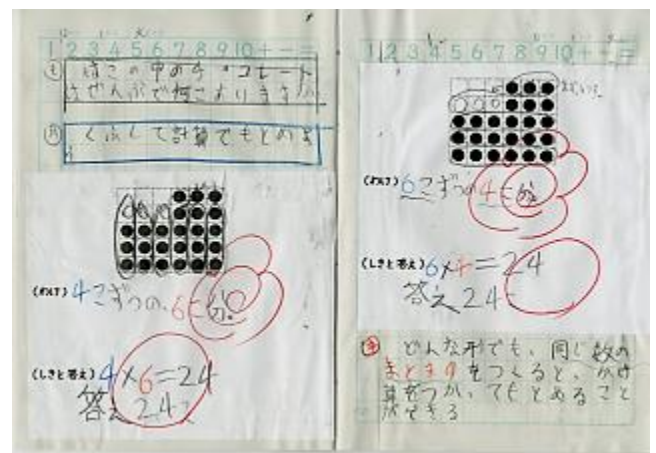 1 2 3 4 5 6 7 8 9 10 + - =
はこの中のチョコレート
はぜんぶで何こありますか
くふうして計算でもとめよ
う
(わけ) 4こずつの、6こ分。
(しきと答え) 4×6=24
答え 24こ
1 2 3 4 5 6 7 8 9 10 + - =
(わけ) 6こずつの4こ分
(しきと答え) 6×4=24
答え 24こ
どんな形でも、同じ数の
まとまりをつくると、かけ
算をつかってもとめること
ができる